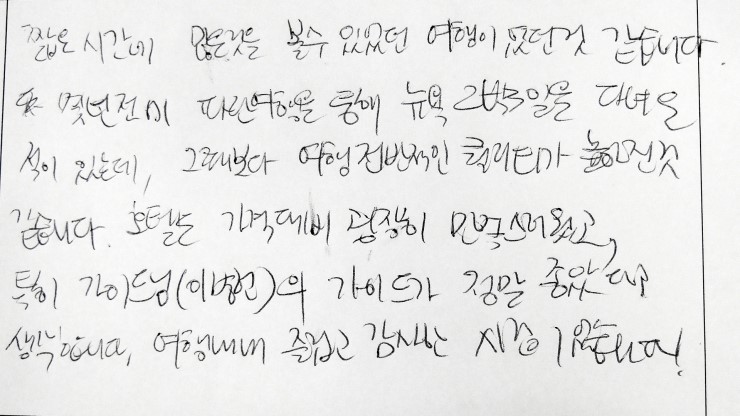 짧은 시간에 많은것을 볼수 있었던 여행이었던것 같습니다.
몇년전에 파란여행을 통해 뉴욕 2박3일을 다녀온
적이 있는데, 그때보다 여행 전반적인 퀄리티가 높아진것
같습니다. 호텔도 가격대비 굉장히 만족스러웠고,
특히 가이드님(이병헌)의 가이드가 정말 좋았다고
생각합니다, 여행내내 즐겁고 감사한 시간이었습니다!